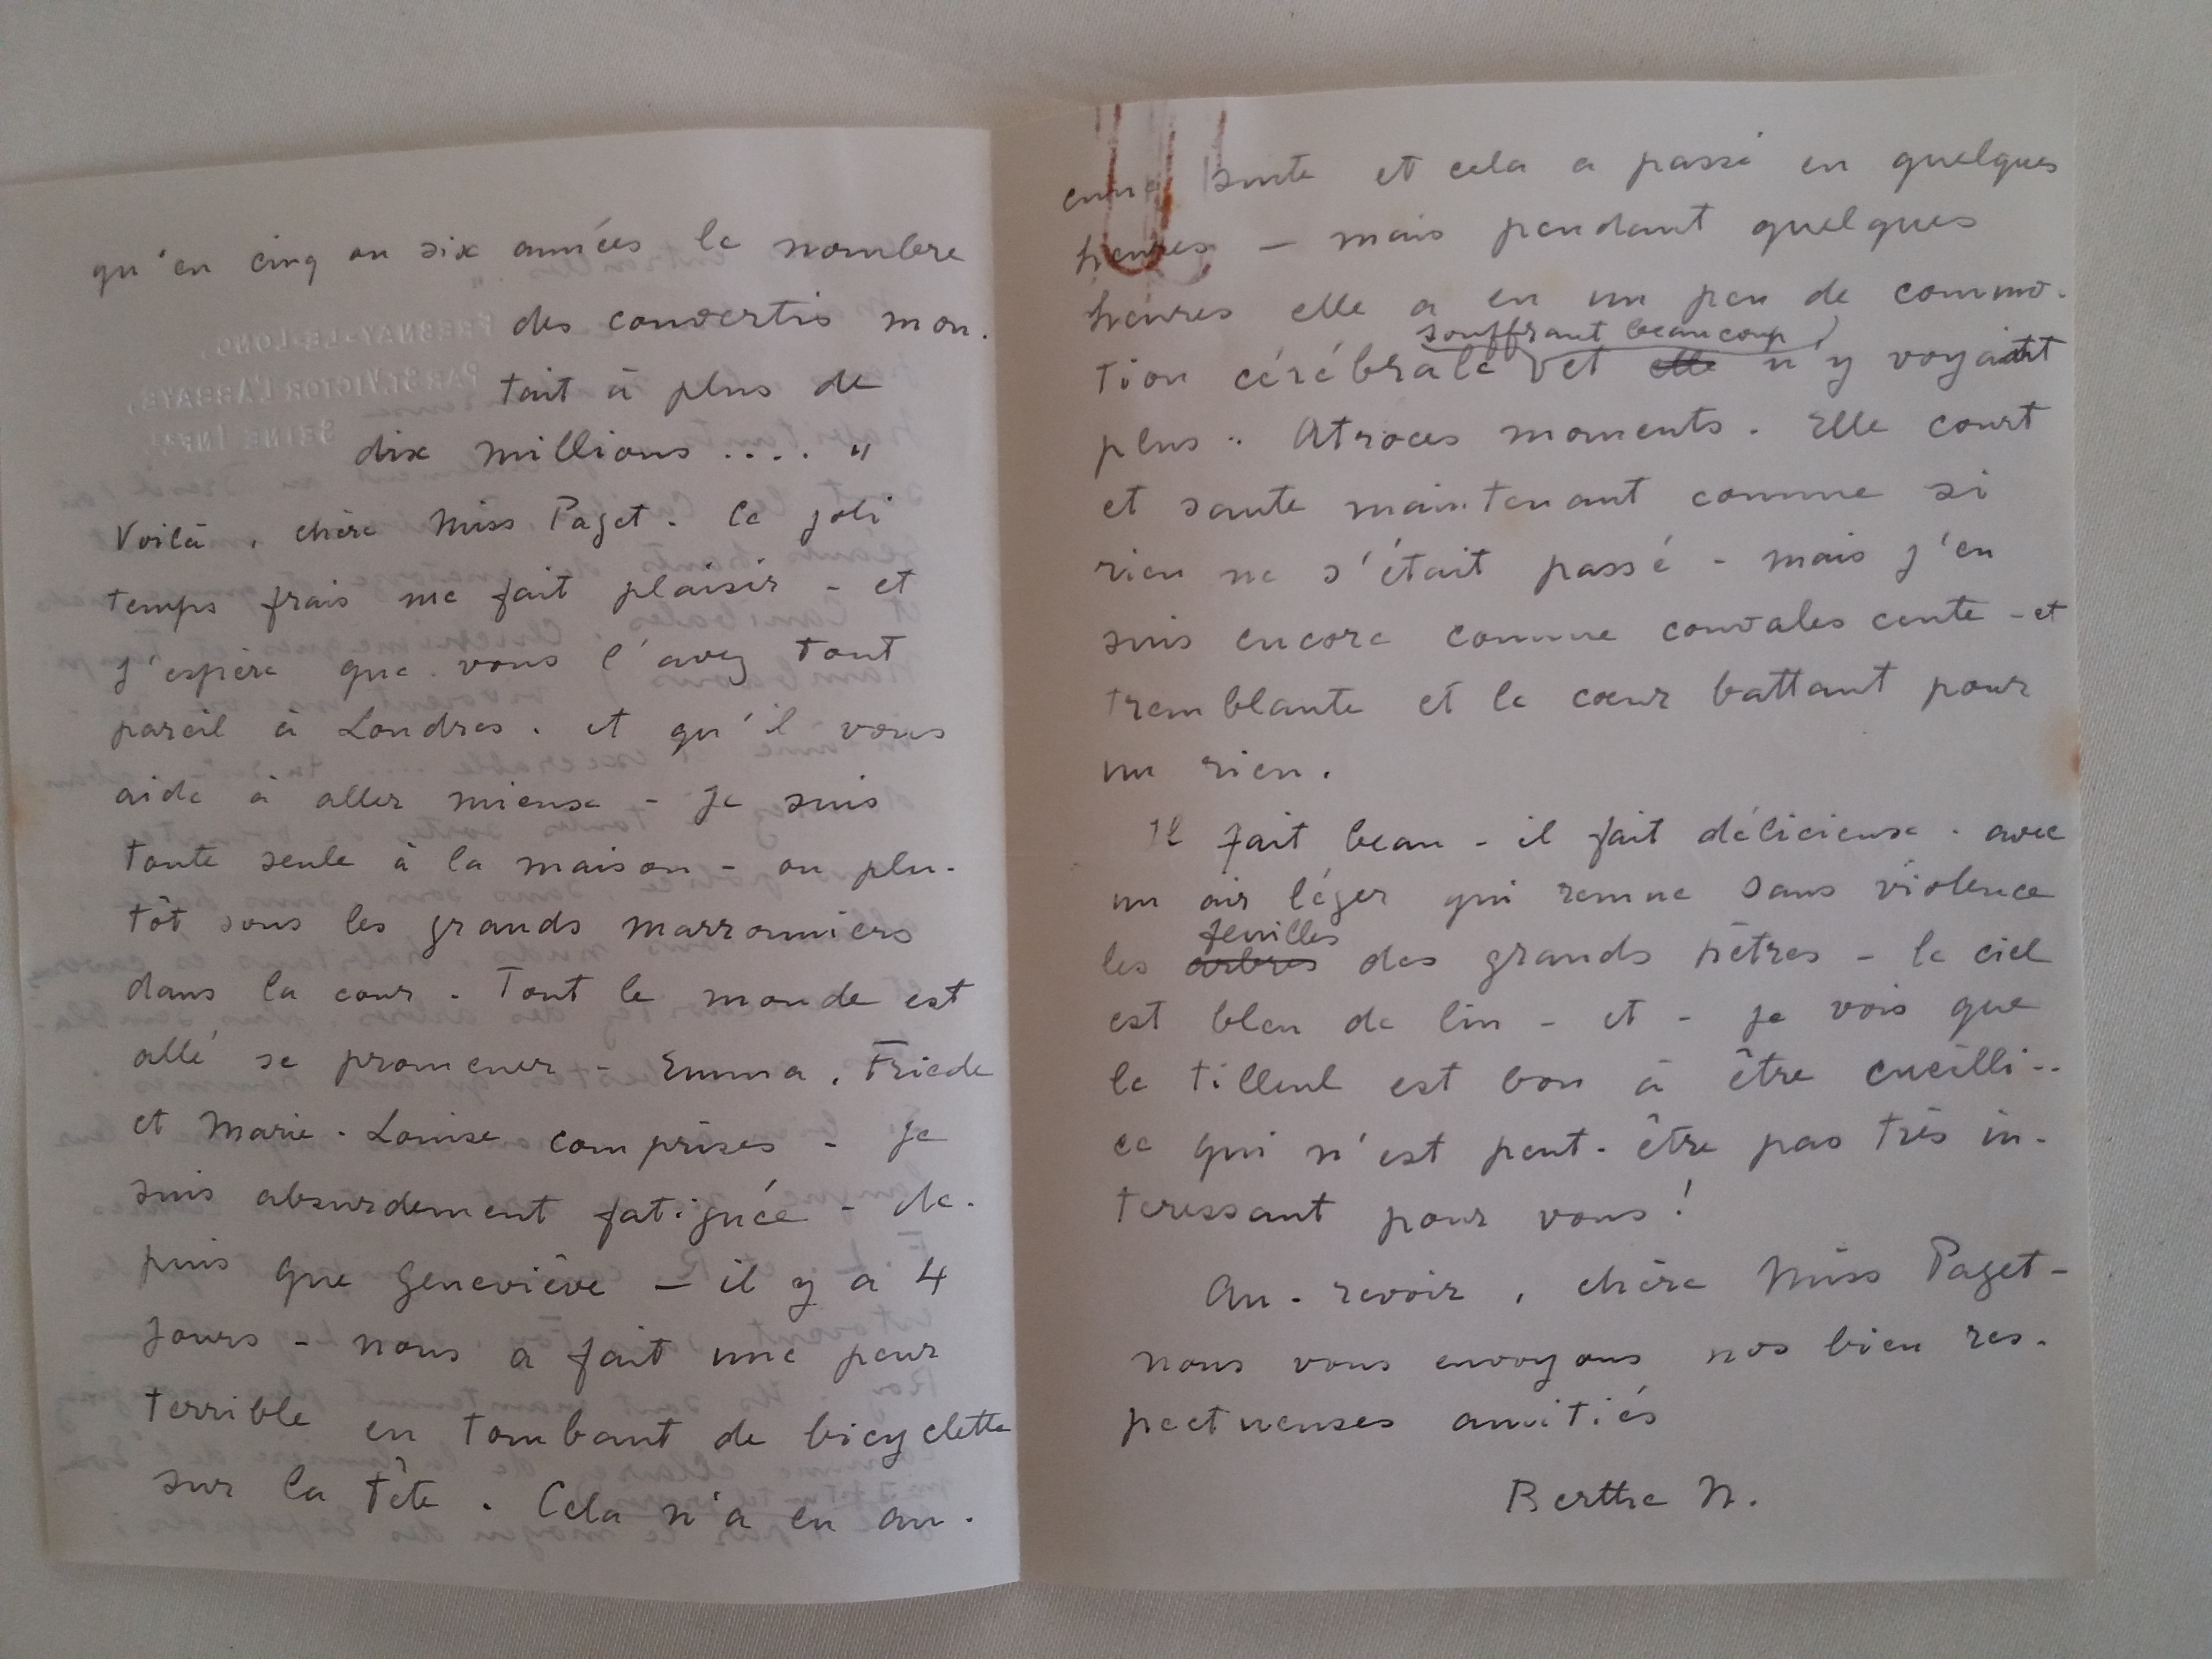 qu'en cinq ou six années le nombre
des convertis mon-
tait à plus de
dix millions .... "
FRESNAY-LE-LONG,
PAR ST VICTOR L'ABBAYE,
SEINE INFRE
Voilà, chère Miss Paget. Ce joli
temps frais me fait plaisir - et
j'espère que vous l'avez tout
pareil à Londres. et qu'il vous
aide à aller mieux - Je suis
toute seule à la maison - ou plu-
tôt sous les grands marronniers
dans la cour. Tout le monde est
allé se promener - Emma, Friede
et Marie-Louise comprises - Je
suis absurdement fatiguée - de-
puis que Geneviève — il y a 4
jours - nous a fait une peur
terrible en tombant de bicyclette
sur la tête. Cela n'a eu au-
cune suite et cela a passé en quelques
heures — mais pendant quelques
heures elle a eu un peu de commo-
souffrant beaucoup
tion cérébrale et elle n'y voyant
plus .. Atroces moments. Elle court
et saute maintenant comme si
rien ne s'était passé - mais j'en
suis encore comme convalescente - et
tremblante et le cœur battant pour
un rien.
Il fait beau - il fait délicieux - avec
un air léger qui remue sans violence
feuilles
les arbres des grands hêtres - le ciel
est bleu de lin - et - je vois que
le tilleul est bon à être cueilli ..
ce qui n'est peut-être pas très in-
teressant pour vous!
Au-revoir, chère Miss Paget -
nous vous envoyons nos bien res-
pectueuses amitiés
Berthe N.